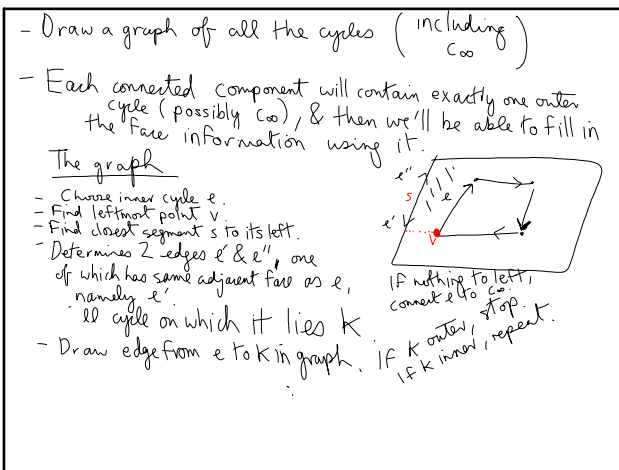 - Draw a graph of all the cycles (including C∞)
- Each connected component will contain exactly one outer
cycle (possibly C∞), & then we'll be able to fill in
the face information using it.
The graph
- Choose inner cycle e.
- Find leftmost point v
- Find closest segment s to its left.
- Determines 2 edges e' & e'', one
of which has same adjacent face as e,
namely e'.
cycle on which it lies K
- Draw edge from e to K in graph. If K outer, stop.
If K inner, repeat.
e''
s
e'
e
v
If nothing to left,
connect e to C∞.